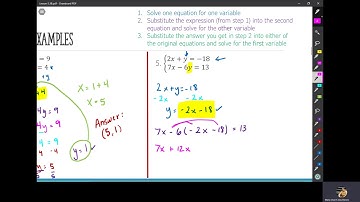 Lesson 5.2B.pdf - Drawboard PDF
1. Solve one equation for one variable
2. Substitute the expression (from step 1) into the second
equation and solve for the other variable
3. Substitute the answer you get in step 2 into either of
the original equations and solve for the first variable
EXAMPLES
= 9
= 4x
x = 1 + 4
x = 5
4y = 9
y = 9
Answer:
(5, 1)
y = 1
5. { 2x + y = -18
7x - 6y = 13
2x + y = -18
-2x -2x
y = -2x - 18
7x - 6(-2x - 18) = 13
7x + 12x